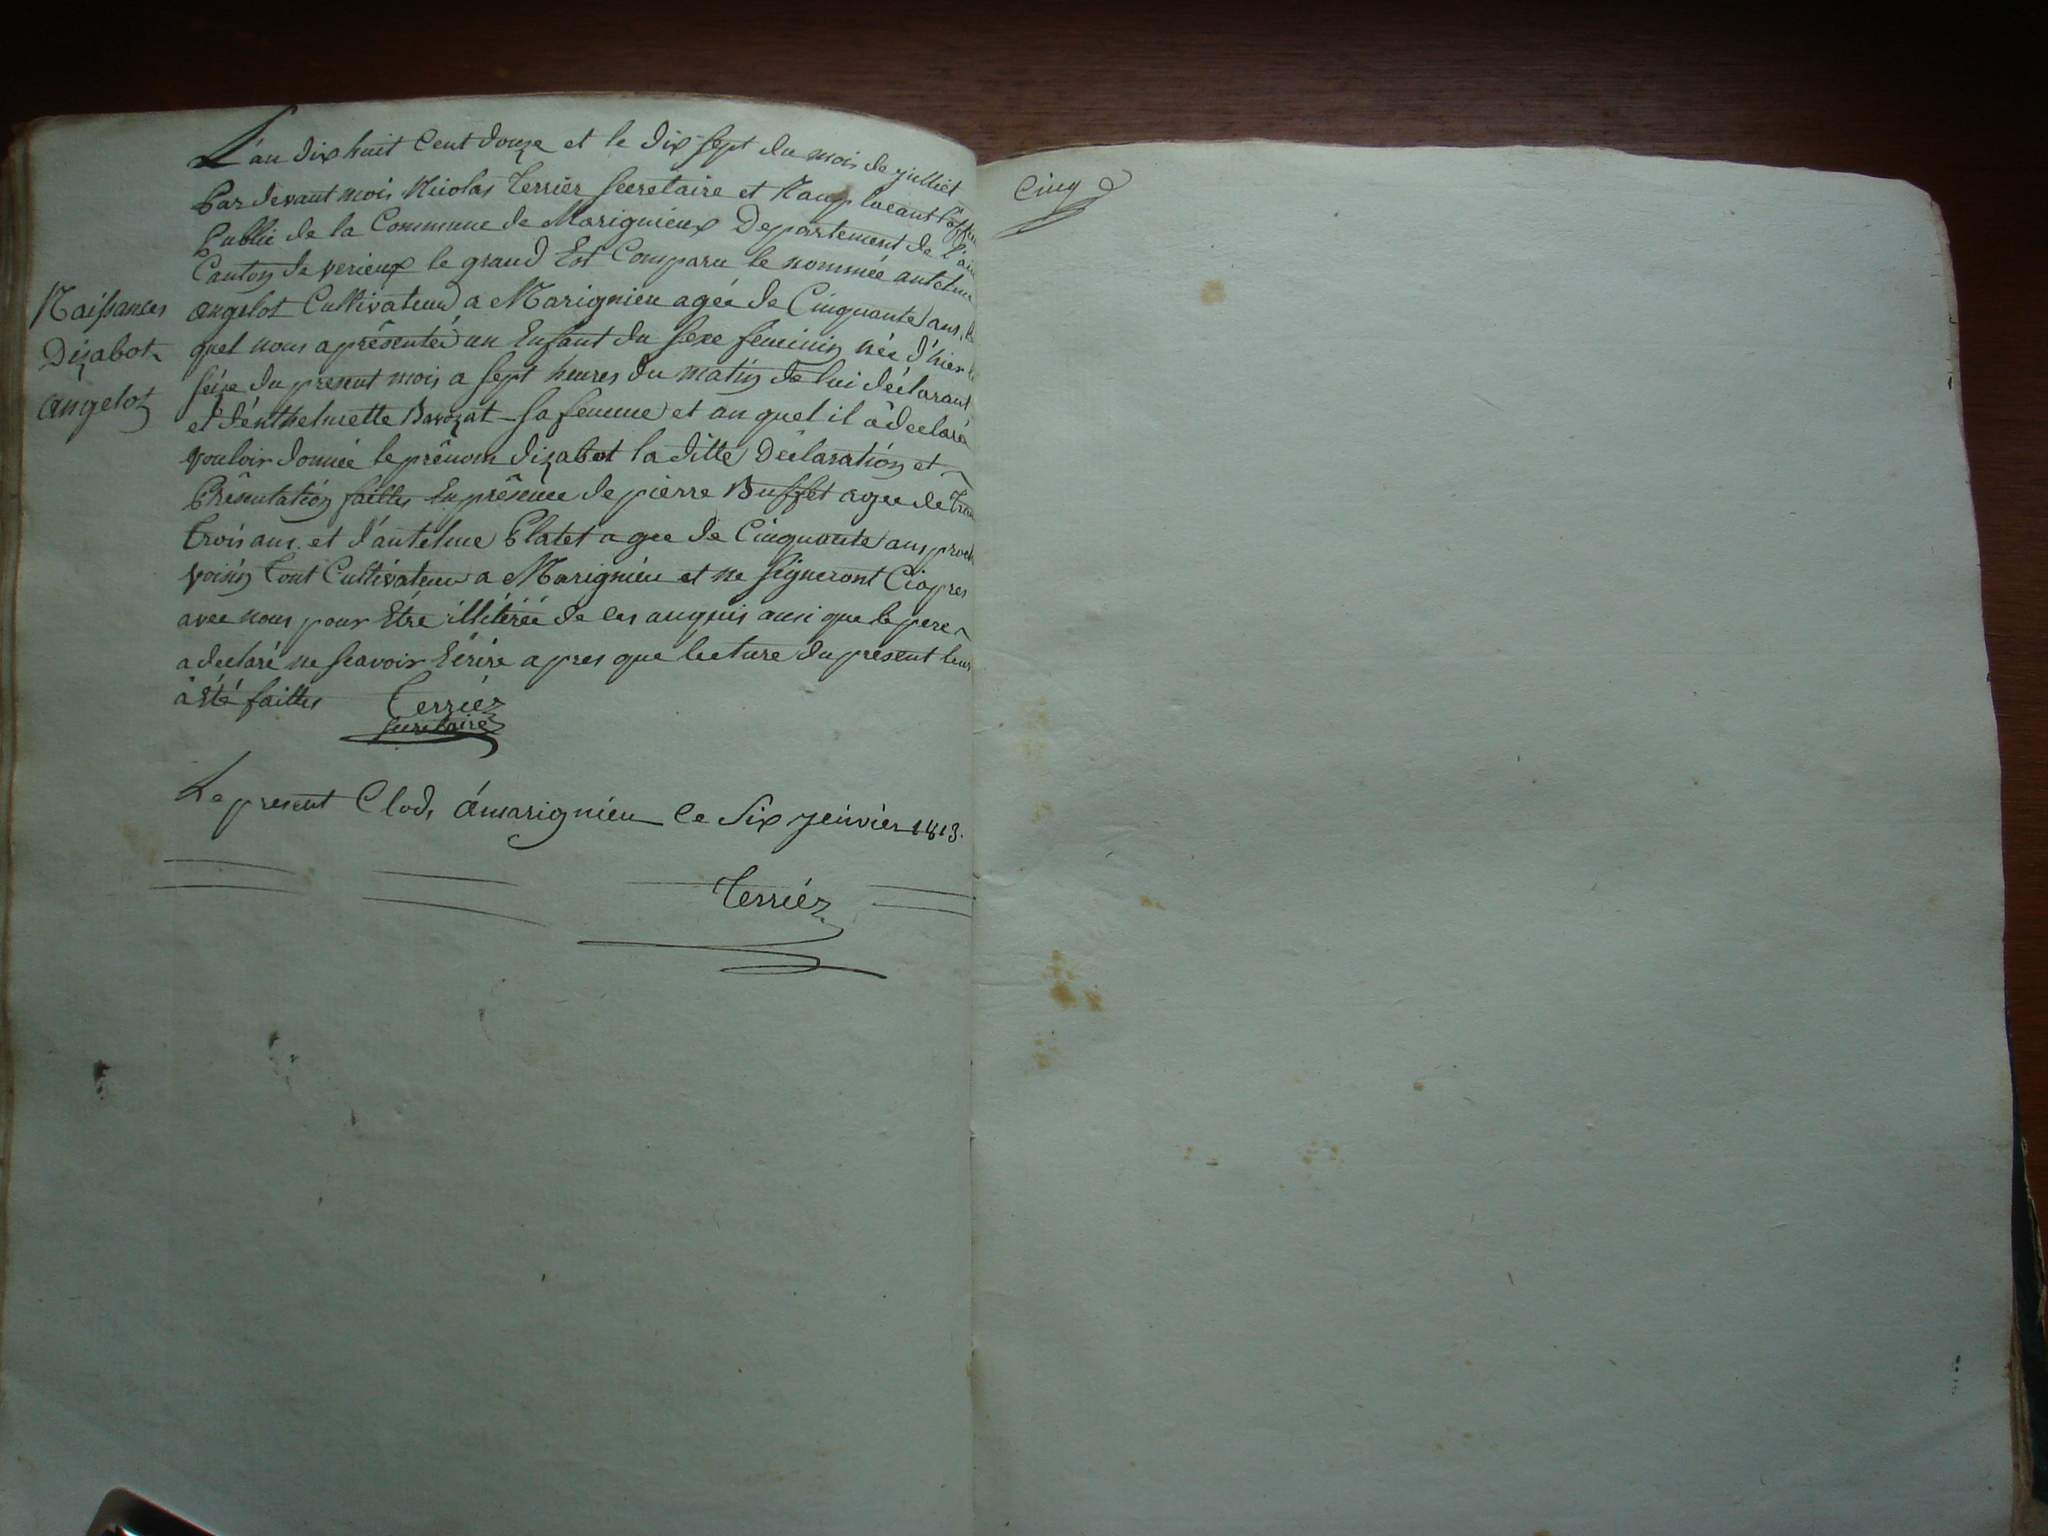 L'an dix huit Cent douze et le dix sept du mois de julliet
Pardevant mois Nicolas Terrier Secretaire et Ramplacant l'off
Public de la Commune de Marignieux Departement de l'ain
Canton de verieux le grand Est Comparu le nommée antelme
Naissances
Dizabot
angelot
angelot Cultivateur a Marignieu agée de Cinquante ans, le
quel nous a présentée un Enfant du Sexe féminin née d'hier le
seize du present mois a sept heures du matin de lui déclarant
et d'énthelmette Bavozat Sa femme et au quel il à déclaré
vouloir donnée le prénom dizabot la ditte Déclaration et
Présentation faittes En présence de pierre Buffet agee de
trois ans et d'antelme Platet agee de Cinquante ans proch
voisin tout Cultivateur a Marignieu et ne signeront Ciapres
avec nous pour Etre illétérée de ces anquis ausi que le pere
a declaré ne scavoir Ecrire apres que lecture du présent leur
à Eté faittes Terriéz
Secretaire
Le present Clod, àmarignieu ce Six jenvier 1813.
Terriéz
Cinq